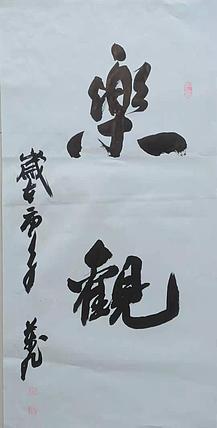 樂觀
歲在庚子